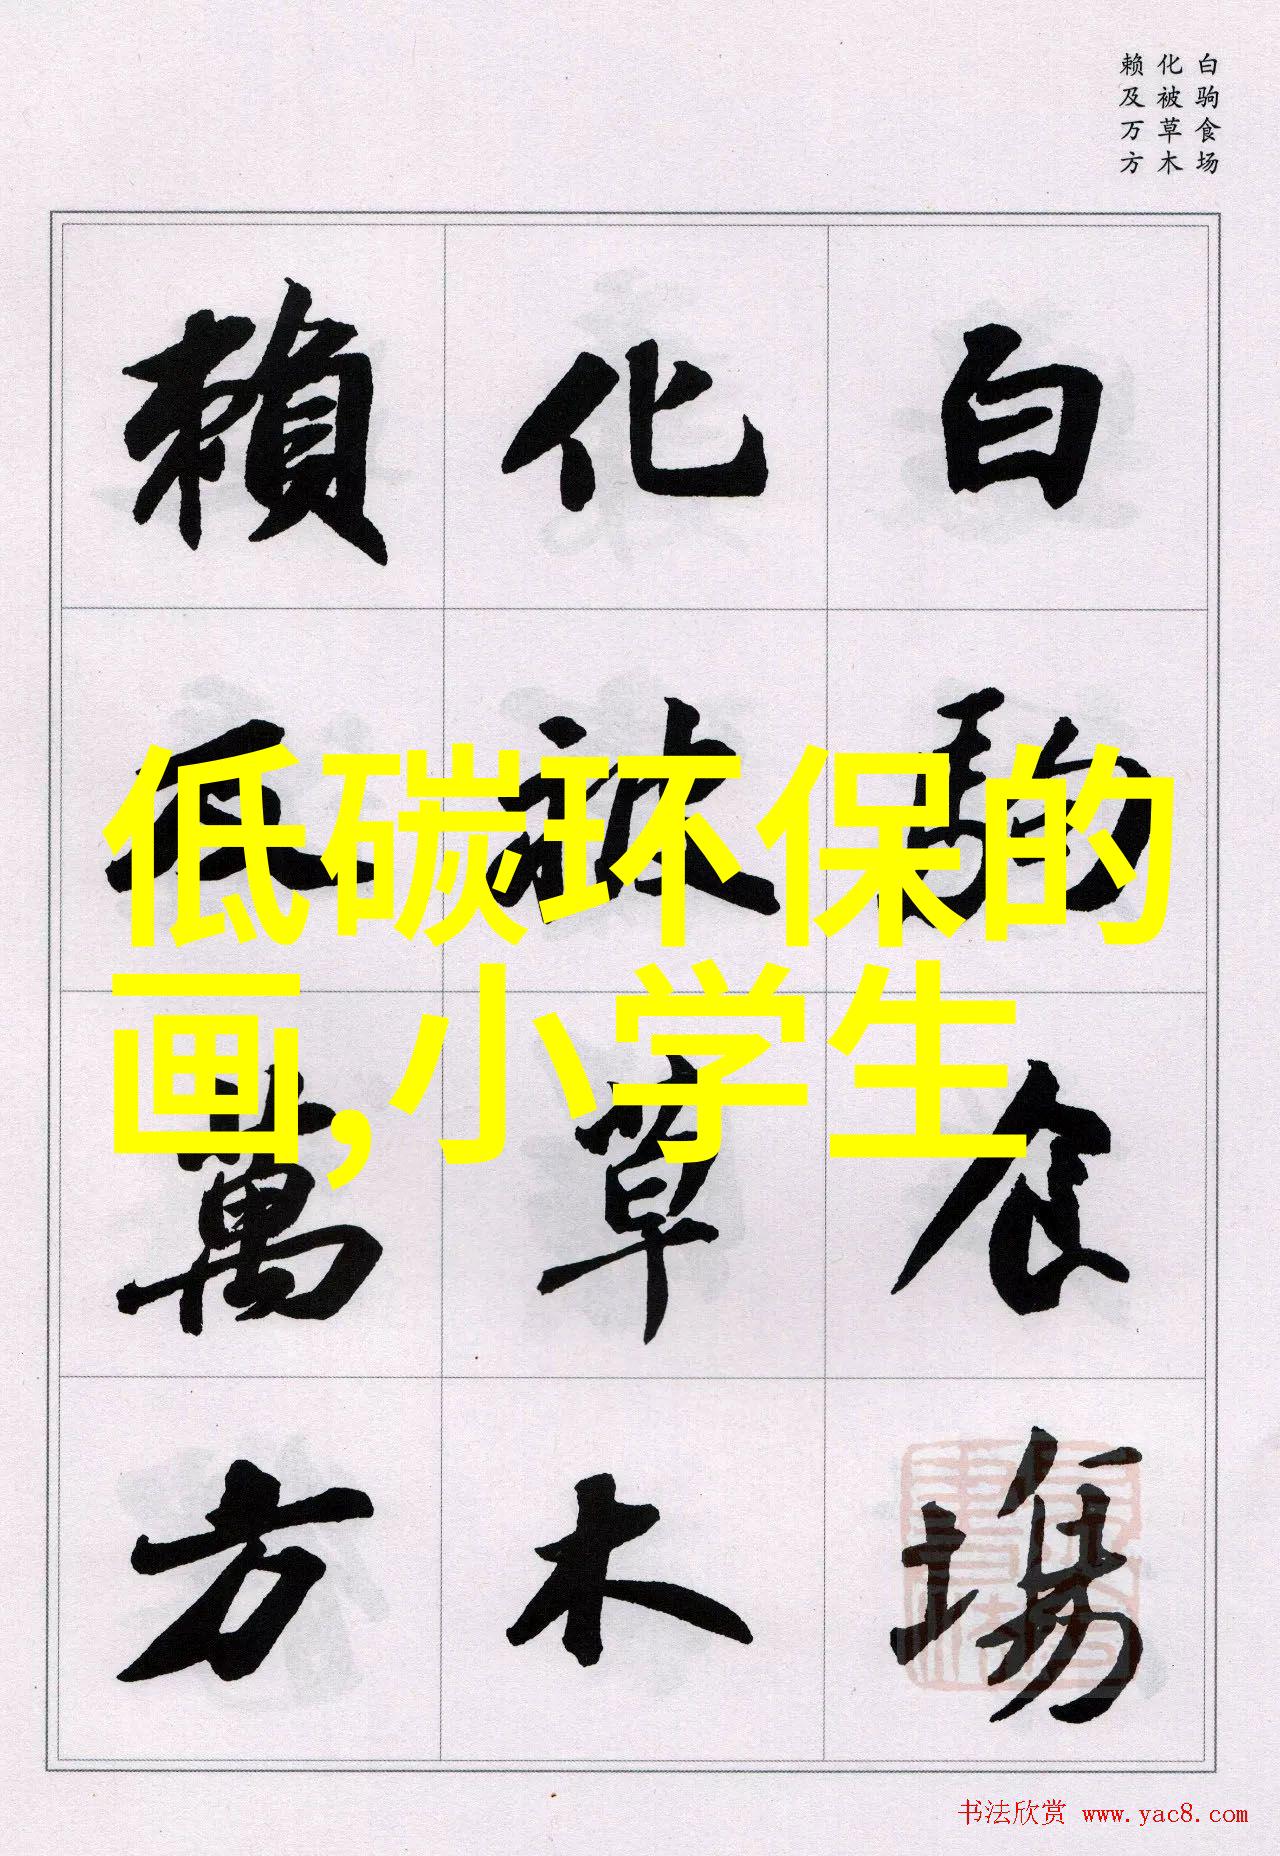 白驹食场
化被草木
赖及万方
白駒食場
化被草木
賴及萬方
低碳环保的
画,小学生
书法欣赏 www.yac8.com